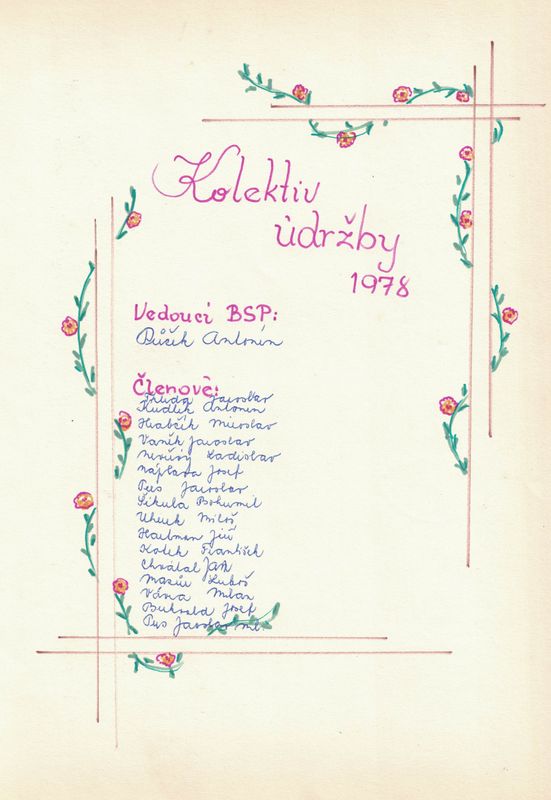 Kolektiv
údržby
1978
Vedoucí BSP:
Antonín
Členové:
Jaroslav
Kudlík Antonín
Hrabčík Miroslav
Vaněk Jaroslav
Ladislav
Náplava Josef
Pus Jaroslav
Šikula Bohumil
Miloš
Hartman Jiří
Kotek František
Chvátal Jan
Mazůr Luboš
Vána Milan
Josef
Pus Jaroslav ml.